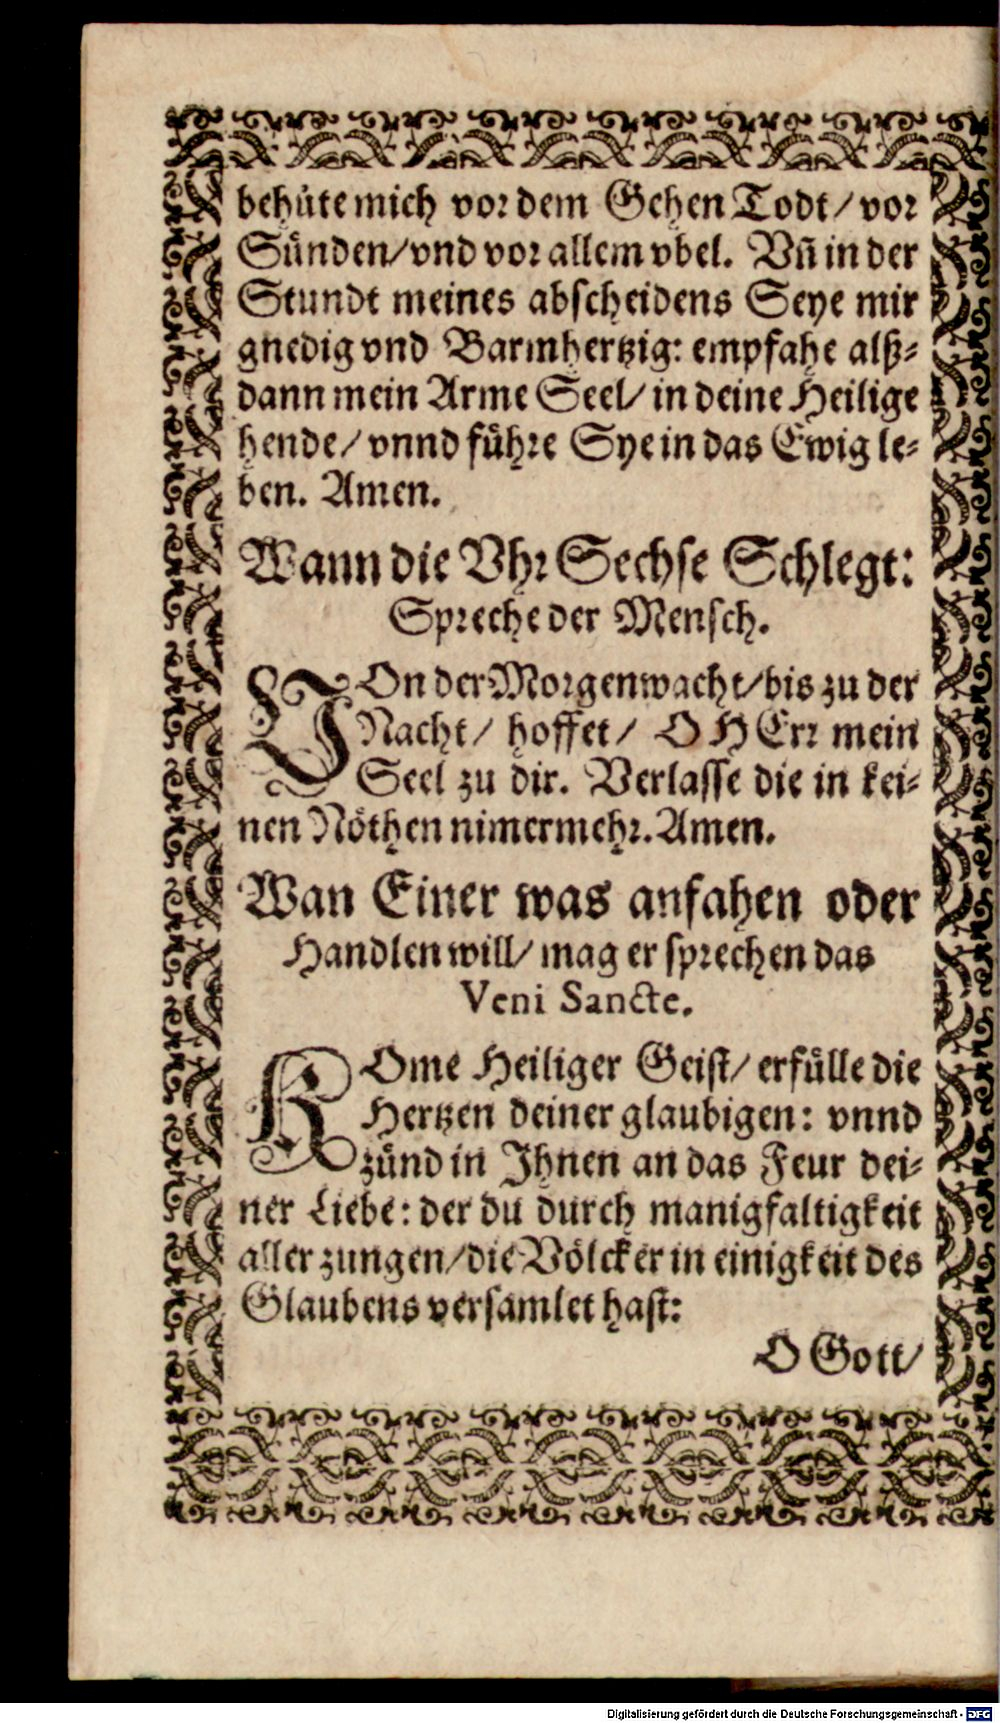 behüte mich vor dem Gehen Todt/ vor
Sünden/ vnd vor allem vbel. Vn̄ in der
Stundt meines abscheidens Seye mir
gnedig vnd Barmhertzig: empfahe alß-
dann mein Arme Seel/ in deine Heilige
hende/ vnnd führe Sye in das Ewig le-
ben. Amen.
Wann die Vhr Sechse Schlegt:
Spreche der Mensch.
VOn der Morgenwacht/ bis zu der
Nacht/ hoffet/ O HErr mein
Seel zu dir. Verlasse die in kei-
nen Nöthen nimermehr. Amen.
Wan Einer was anfahen oder
Handlen will/ mag er sprechen das
Veni Sancte.
KOme Heiliger Geist/ erfülle die
Hertzen deiner glaubigen: vnnd
zünd in Ihnen an das Feur dei-
ner Liebe: der du durch manigfaltigkeit
aller zungen/ die Völcker in einigkeit des
Glaubens versamlet hast:
O Gott/
Digitalisierung gefördert durch die Deutsche Forschungsgemeinschaft - DFG